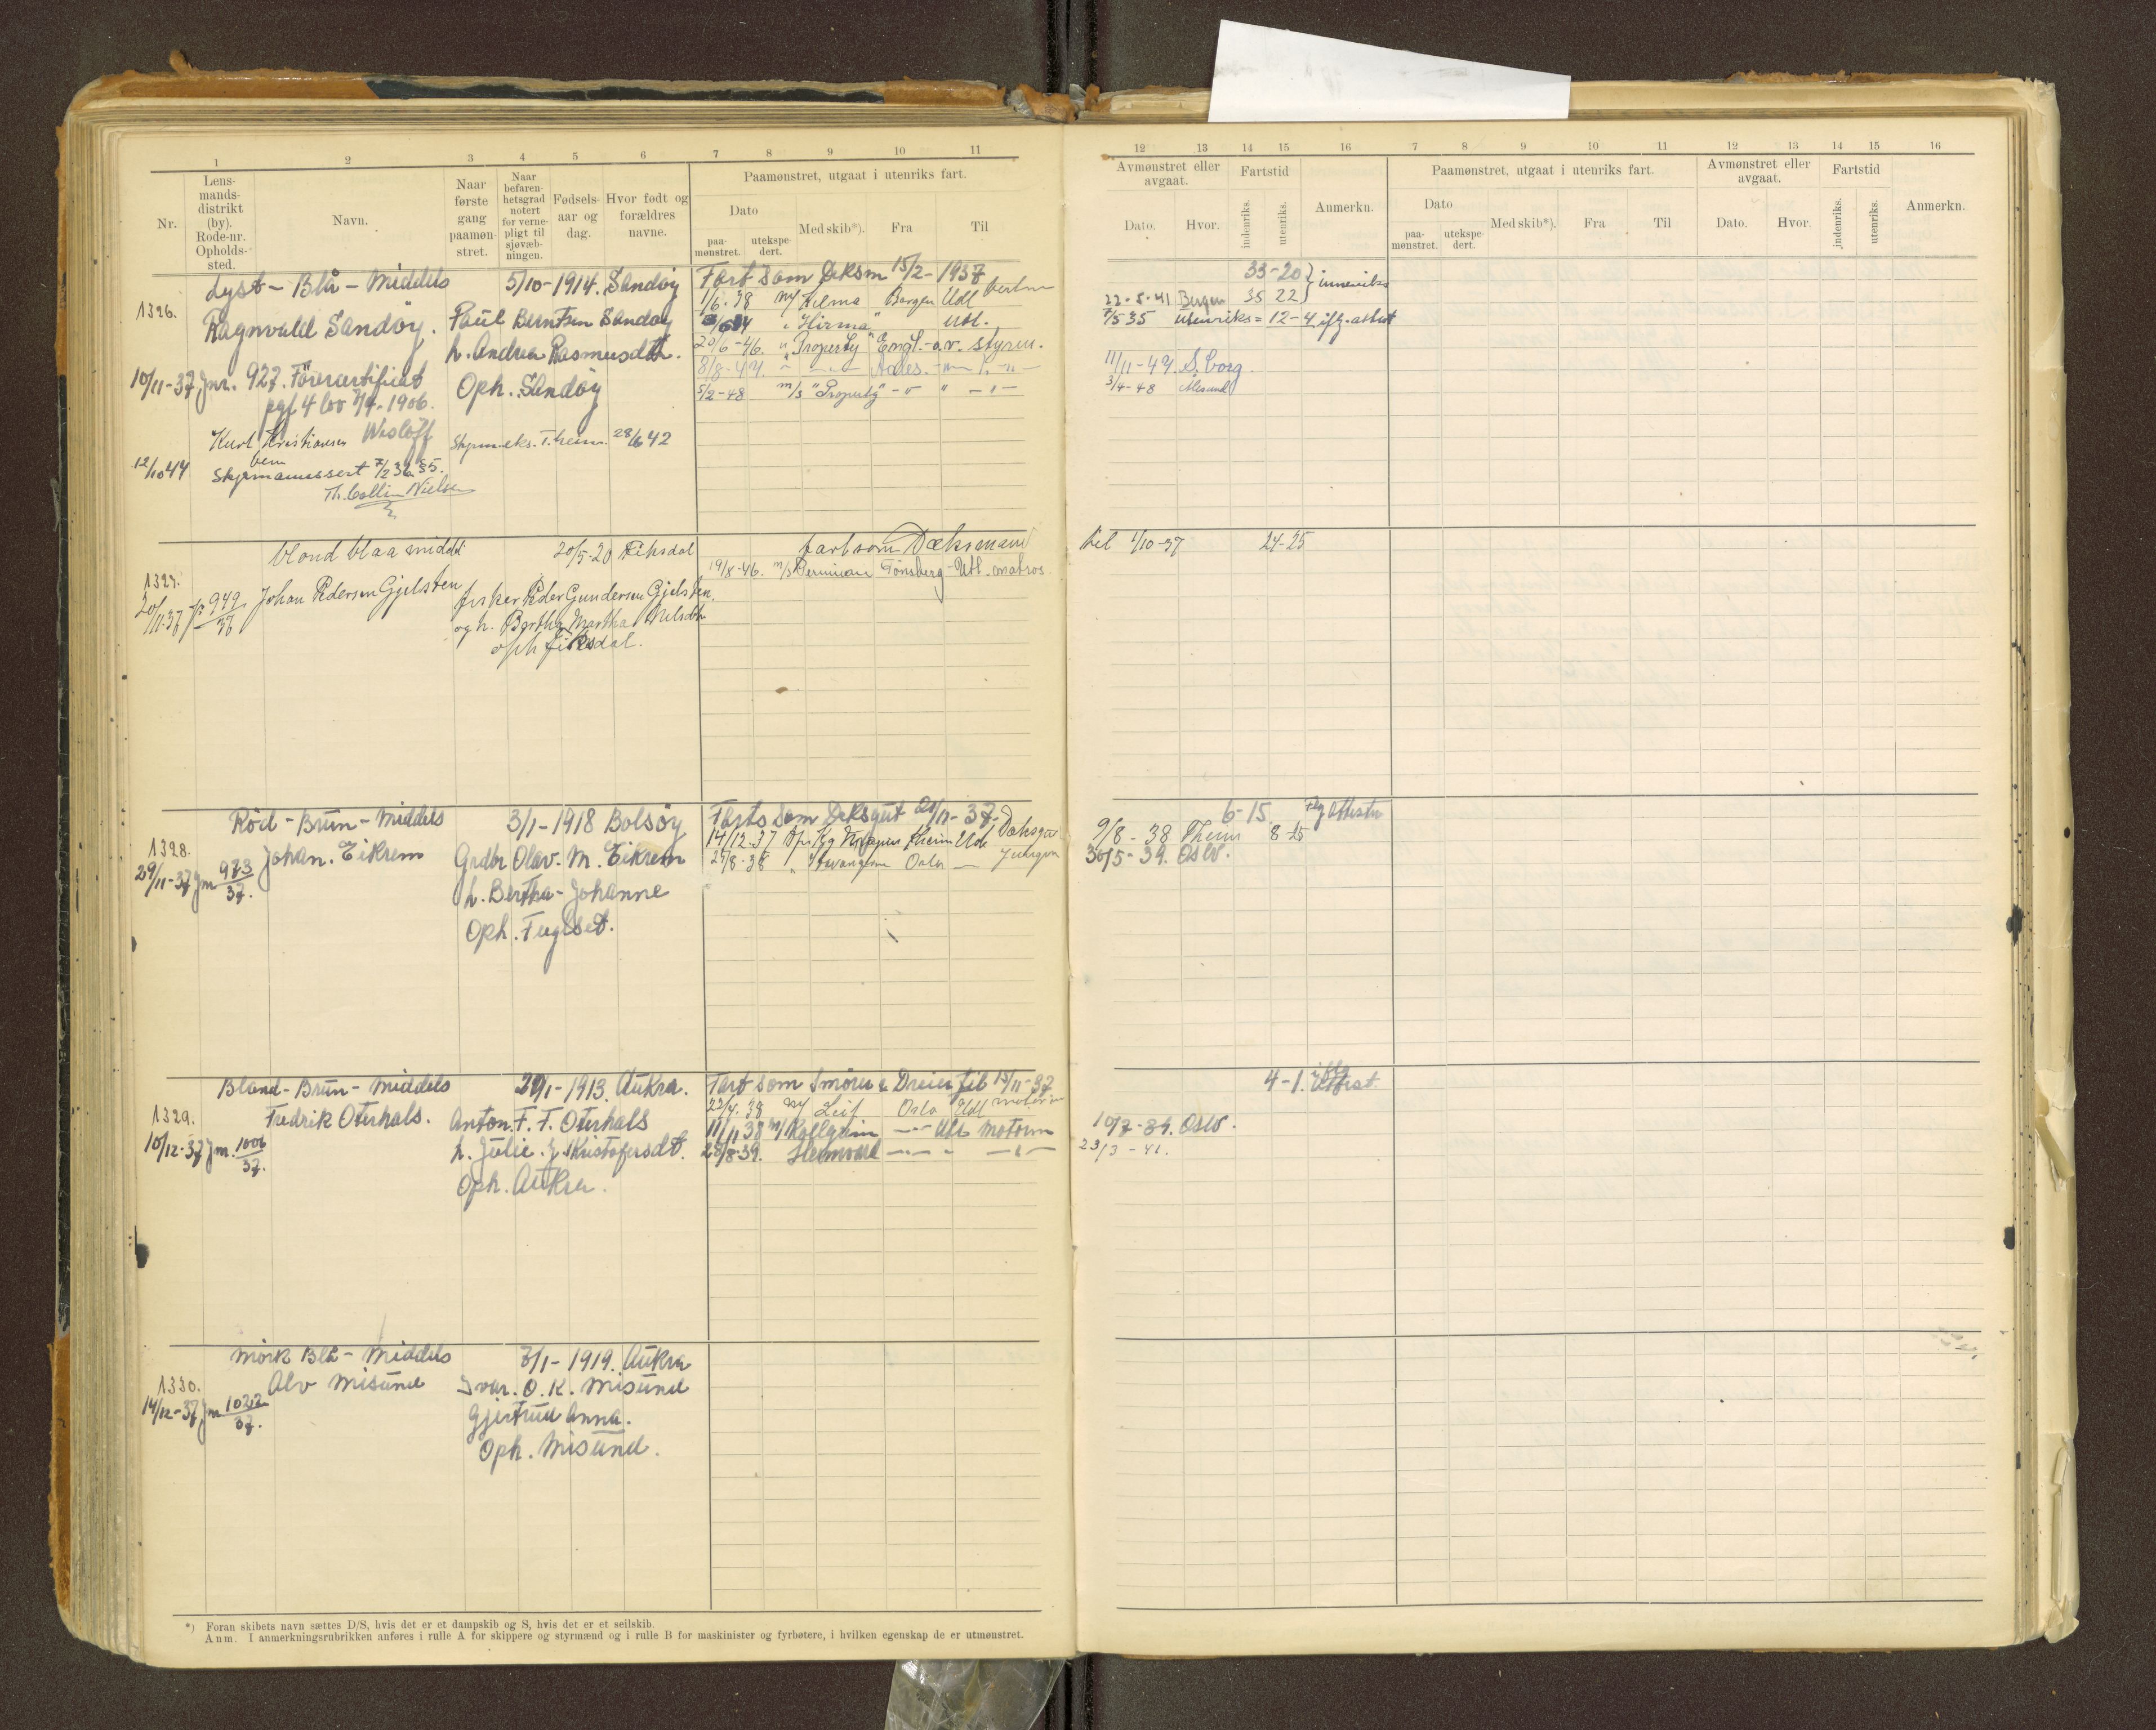 1 2 3 4 5 6 7 8 9 10 11
Nr.
Lens-
mands-
distrikt
(by).
Rode-nr.
Opholds-
sted.
Navn.
Naar
første
gang
paamøn-
stret.
Naar
befaren-
hetsgrad
notert
for verne-
pligt til
sjøvæb-
ningen.
Fødsels-
aar og
dag.
Hvor født og
forældres
navne.
Paamønstret, utgaat i utenriks fart.
Dato
paa-
mønstret.
utekspe-
dert.
Med skib*).
Fra
Til
Lyst - Blå - Middels 5/10-1914. Sandøy Fart som Deksm 15/2-1937
1/6.38 M/ Hilma Bergen Udl
1326.
Ragnvald Sandøy. Paul Berntsen Sandøy "Hirma" Utl.
h. Andrea Rasmusdtt. 20/6-46. " "Property" Engl. - o.v. styrm.
8/8-47. " Aales.
10/11-37 Jnr. 927. Förercertifikat Oph. Sandøy
5/2-48 m/s "Property"
pgf 4 lov 1906.
Kurt Kristiansen Wisløff Styrm.eks. T.heim. 28/6 42
12/10 44 Styrmannssert 7/2 36. 55.
Th. Collin Nielsen
blond blaa middel 20/5-20 Fiksdal fart som Dæksmand
19/8-46. m/s Peruvian Tönsberg - Utl. matros.
1327.
20/11-37 949/37 Johan Pedersen Gjelsten fisker Peder Gundersen Gjelsten,
og h. Bertha Martha Nilsdtr
oph fiksdal.
Röd - Brun - Middels 3/1-1918 Bolsöy Farts som Deksgut 20/11-37. Dæksgut
14/12.37 Kg Magnus Theim Udl
1328.
29/11-37 Jnr 973/37. Johan. Eikrem Grdbr Olav. M. Eikrem
27/8-38 " Stavangeren Oslo Jungm
h. Bertha - Johanne
Oph. Fuglset.
Blond - Brun - Middels 29/1-1913. Aukra. Fart som Smörer & Dreier til 15/11-37
22/4.38 M/ Leif Oslo Udl motorm
1329.
Fredrik Oterhals. Anton. F. F. Oterhals 11/11 38 m/ Kollgrim Utl Motorm
10/12-37 Jnr. 1006/37. h. Julie. J. Kristofersdt. 28/8-39. Heimvard
Oph. Aukra.
Mörk Blå - Middels 3/1-1919. Aukra
1330.
Alv Misund Ivar. O. K. Misund
14/12-37 Jnr 1022/37. Gjertrud Anna.
Oph. Misund.
*) Foran skibets navn sættes D/S, hvis det er et dampskib og S, hvis det er et seilskib.
Anm. I anmerkningsrubrikken anføres i rulle A for skippere og styrmænd og i rulle B for maskinister og fyrbøtere, i hvilken egenskap de er utmønstret.
12 13 14 15 16 7 8 9 10 11 12 13 14 15 16
Avmønstret eller
avgaat.
Dato.
Hvor.
Fartstid
indenriks.
utenriks.
Anmerkn.
Paamønstret, utgaat i utenriks fart.
Dato
paa-
mønstret.
utekspe-
dert.
Med skib*).
Fra
Til
Avmønstret eller
avgaat.
Dato.
Hvor.
Fartstid
indenriks.
utenriks.
Anmerkn.
33-20 } innenriks
22-5-41 Bergen 35 22
7/5 35 Utenriks = 12-4 iflg. attest
11/11-47 S.borg.
3/4-48 Ålesund
til 1/10-37 24-25
6-15. iflg Attester
9/8-38 Theim 8 25
30/5-39. Oslo.
4-1. iflg Attest.
10/7-39. Oslo.
23/3-41.